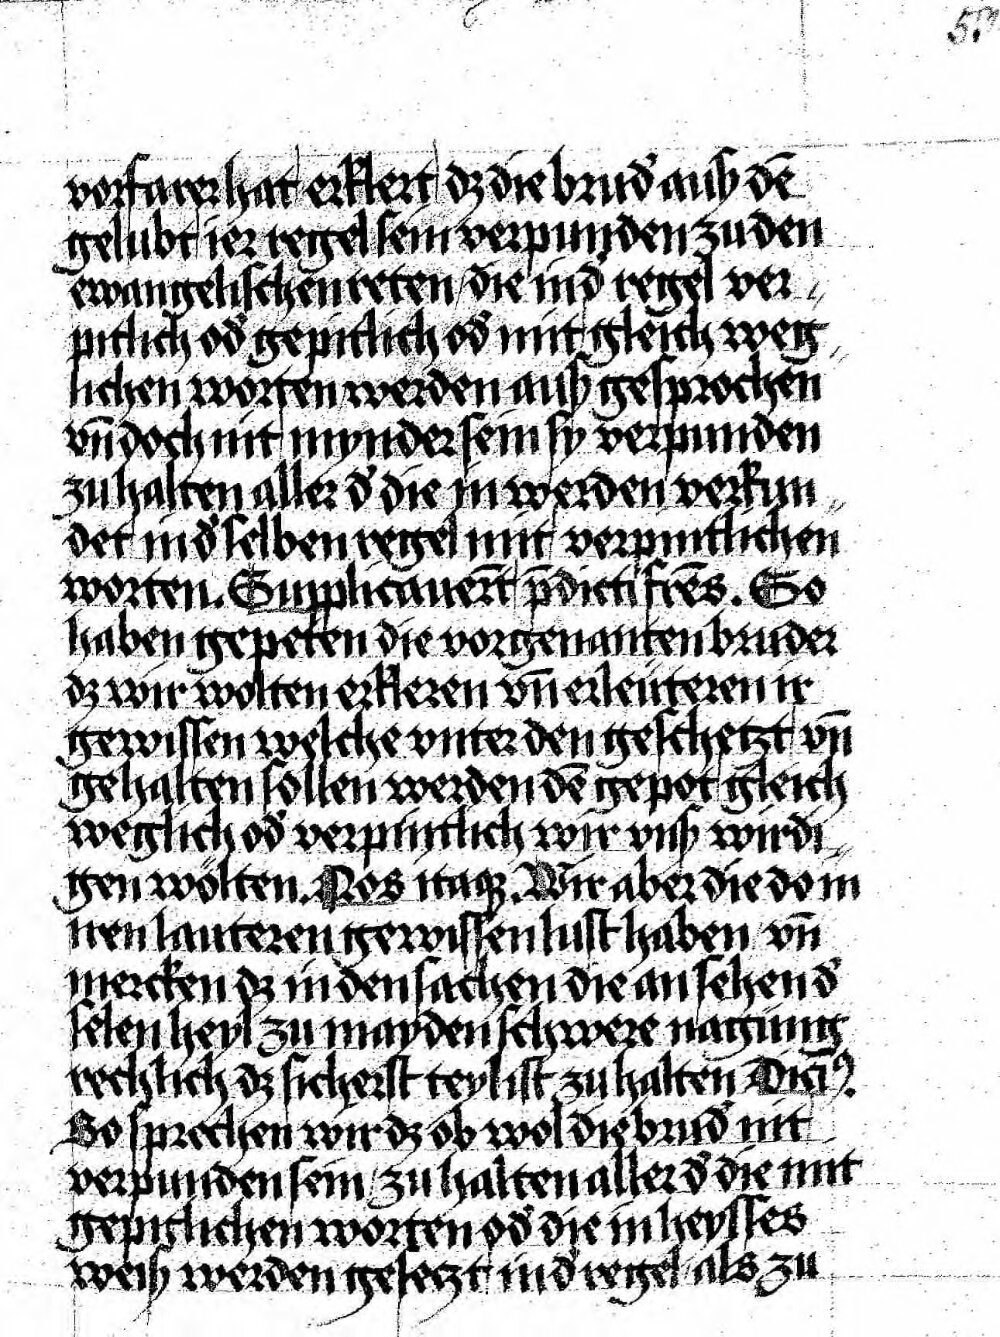 vorfarer hat erklert dz die brud᷑ auß dē
gelubt ier regel sein verpunden zu den
ewangelischen reten / die in d᷑ regel ver⸗
pitlich od᷑ gepitlich od᷑ mit gleich weg⸗
lichen worten werden auß gesprochen
vn̄ doch nit mynder sein sy verpunden
zu halten aller d᷑ die in werden verkun⸗
det in d᷑ selben regel mit verpintlichen
worten. Supplicauerūt p̄dicti fr̄es. So
haben gepeten die vorgenanten bruder
dz wir wolten erkleren vn̄ erleüteren ir
gewissen welche vnter den geschetzt vn̄
gehalten söllen werden dē gepot gleich
weglich od᷑ verpintlich wir vnß wirdi⸗
gen wölten. Nos itaqꝫ. Wir aber die do in
iren lauteren gewissen lust haben vn̄
mercken dz in den sachen die an sehen d᷑
selen heyl zu mayden schwere nagung
rechlich dz sicherst teyl ist zu halten Dici᷒.
So sprechen wir dz ob wol die brud᷑ nit
verpunden sein / zu halten aller d᷑ die mit
gepitlichen worten od᷑ die in heysses
weiß werden gesetzt in d᷑ regel als zu